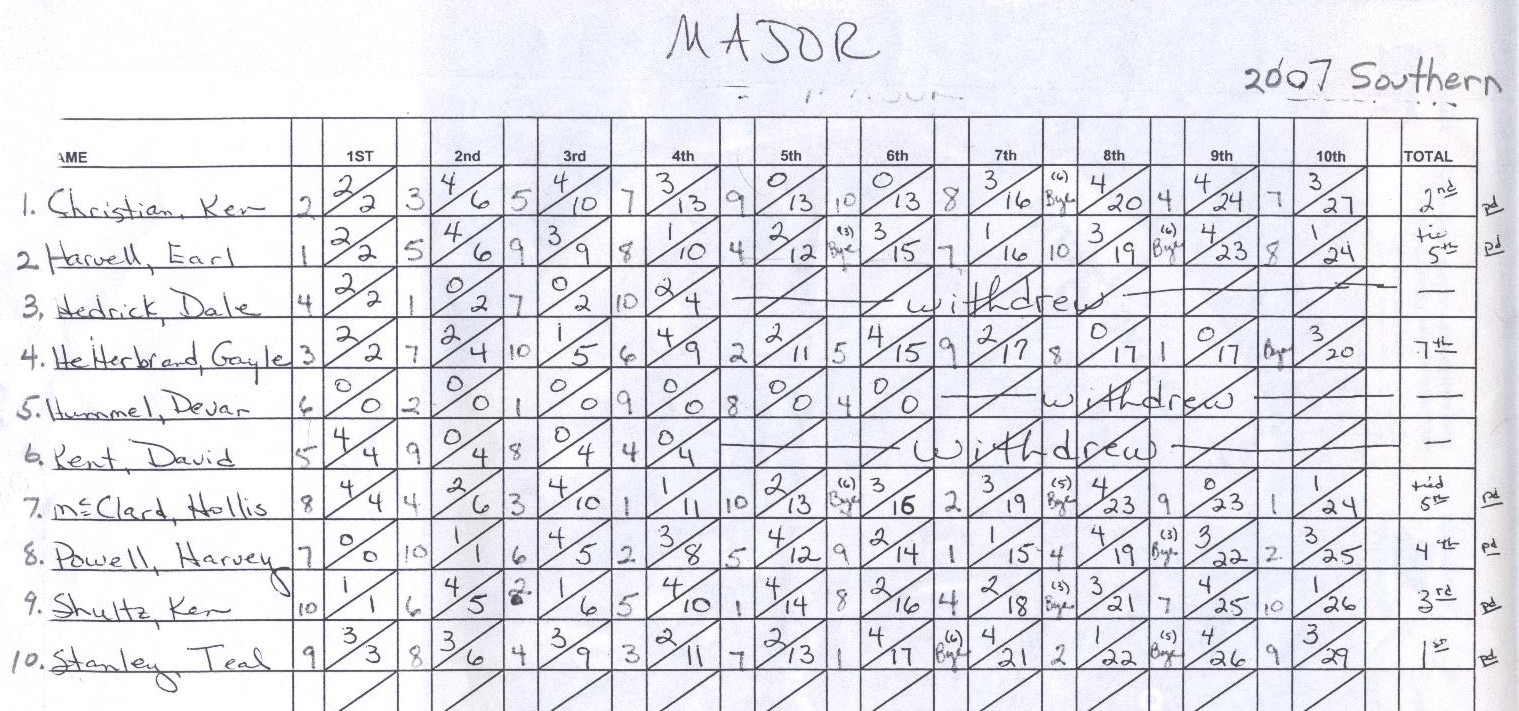 MAJOR
2007 Southern
AME 1ST 2nd 3rd 4th 5th 6th 7th 8th 9th 10th TOTAL
1. Christian, Ken 2 2/2 3 4/6 5 4/10 7 3/13 9 0/13 10 0/13 8 3/16 (6) Bye 4/20 4 4/24 7 3/27 2nd pd
2 Harvell, Earl 1 2/2 5 4/6 9 3/9 8 1/10 4 2/12 (3) Bye 3/15 7 1/16 10 3/19 (6) Bye 4/23 8 1/24 tie 5th pd
3. Hedrick, Dale 4 2/2 1 0/2 7 0/2 10 2/4 withdrew —
4. Heitterbrand, Gayle 3 2/2 7 2/4 10 1/5 6 4/9 2 2/11 5 4/15 9 2/17 8 0/17 1 0/17 Bye 3/20 7th
5. Hummel, Devar 6 0/0 2 0/0 1 0/0 9 0/0 8 0/0 4 0/0 withdrew —
6. Kent, David 5 4/4 9 0/4 8 0/4 4 0/4 withdrew —
7. McClard, Hollis 8 4/4 4 2/6 3 4/10 1 1/11 10 2/13 (6) Bye 3/16 2 3/19 (5) Bye 4/23 9 0/23 1 1/24 tied 5th pd
8. Powell, Harvey 7 0/0 10 1/1 6 4/5 2 3/8 5 4/12 9 2/14 1 1/15 4 4/19 (3) Bye 3/22 2 3/25 4th pd
9. Shultz, Ken 10 1/1 6 4/5 2 1/6 5 4/10 1 4/14 8 2/16 4 2/18 (3) Bye 3/21 7 4/25 10 1/26 3rd pd
10. Stanley, Teal 9 3/3 8 3/6 4 3/9 3 2/11 7 2/13 1 4/17 (6) Bye 4/21 2 1/22 (5) Bye 4/26 9 3/29 1st pd